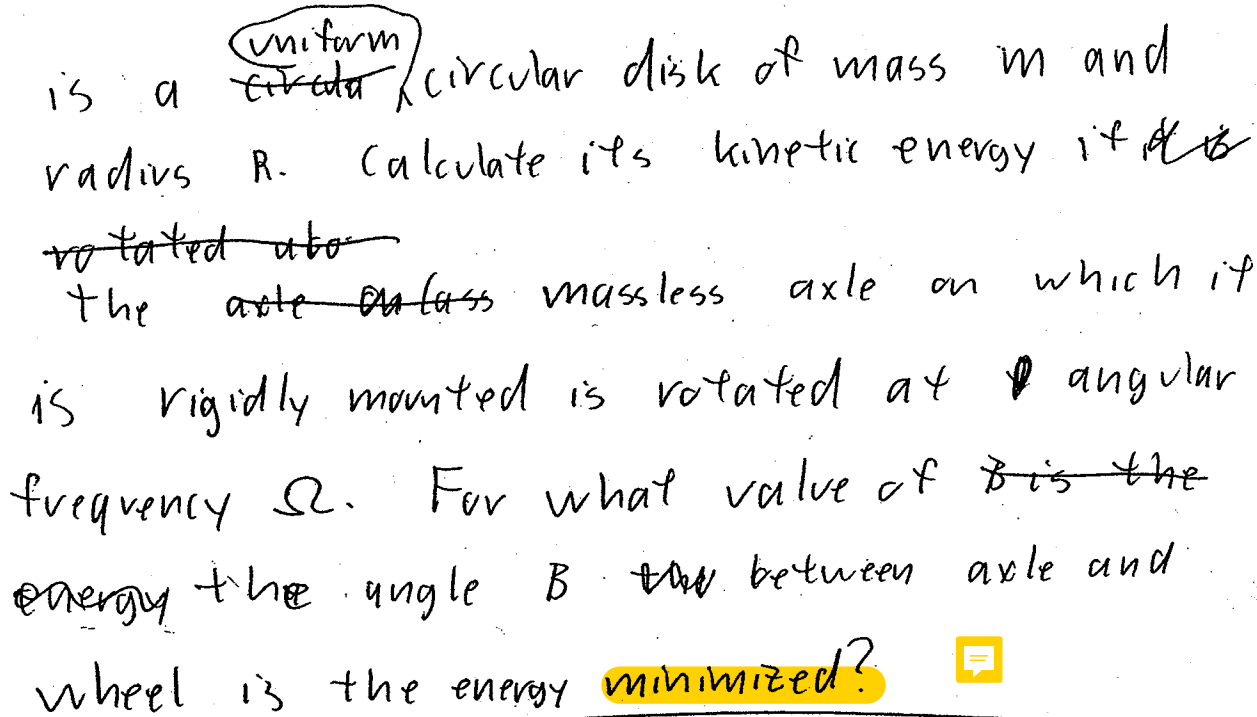 uniform
is a circular disk of mass m and
radius R. Calculate its kinetic energy if
the massless axle on which it
is rigidly mounted is rotated at angular
frequency Ω. For what value of
the angle B between axle and
wheel is the energy minimized?